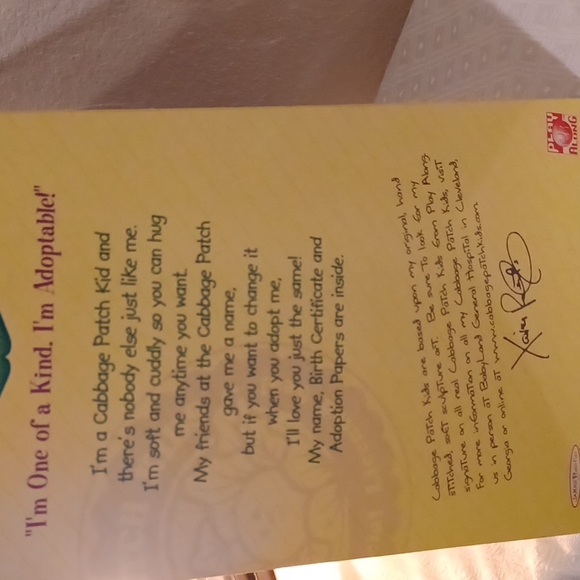 "I'm One of a Kind. I'm Adoptable!"
I'm a Cabbage Patch Kid and
there's nobody else just like me.
I'm soft and cuddly so you can hug
me anytime you want.
My friends at the Cabbage Patch
gave me a name,
but if you want to change it
when you adopt me,
I'll love you just the same!
My name, Birth Certificate and
Adoption Papers are inside.
Cabbage Patch Kids are based upon my original, hand
stitched, soft sculpture art. Be sure to look for my
signature on all real Cabbage Patch Kids from Play Along.
For more information on all my Cabbage Patch Kids, visit
us in person at BabyLand General Hospital in Cleveland,
Georgia or online at www.cabbagepatchkids.com
Xavier Roberts
PLAY
ALONG